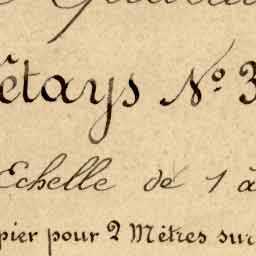 êtays Nº 3
Echelle de 1 à
pier pour 2 Mètres sur